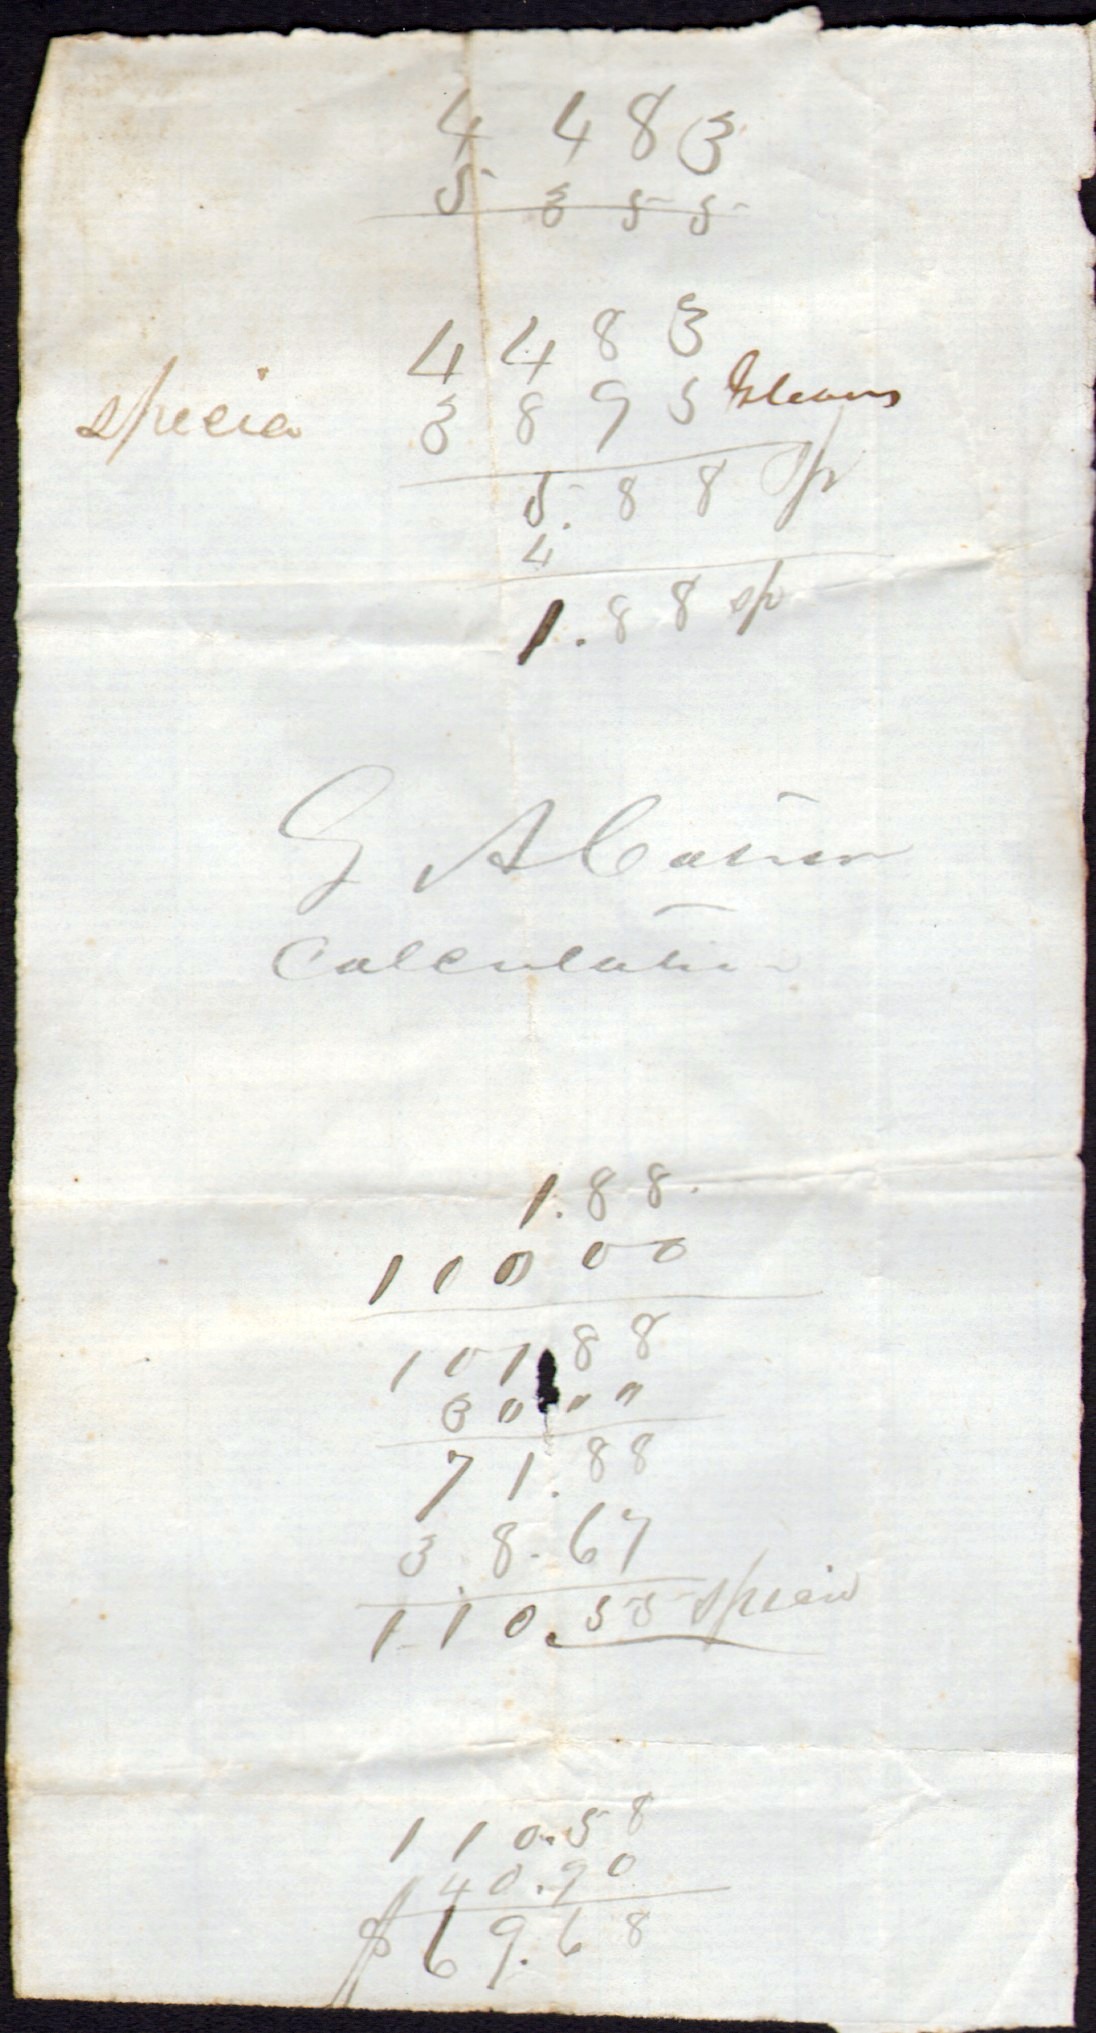 4 483
5 355
4483
specia 3895
5.88 sp
4
1.88 sp
G A
Calculation
1.88.
10000
101.88
3000
71.88
38.67
110.55 specia
110.58
40.90
$69.68